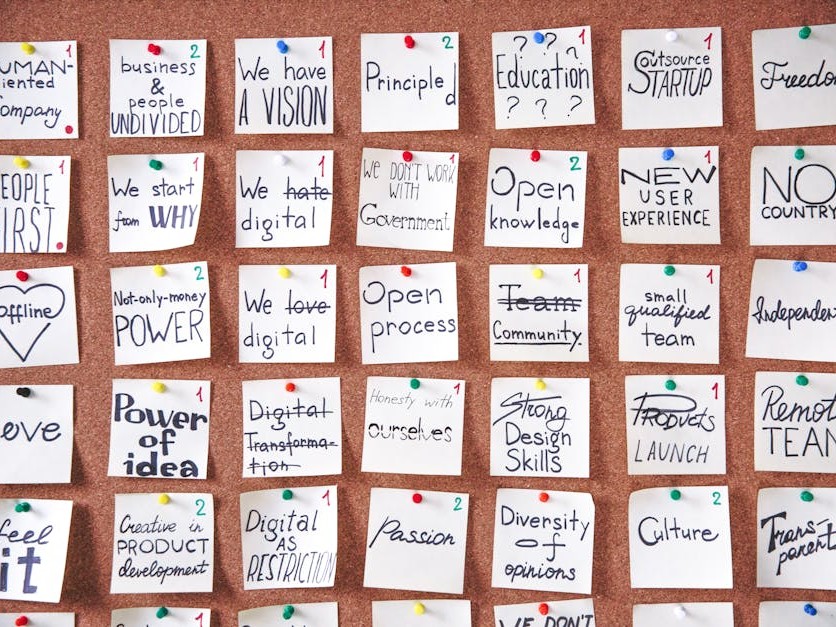 UMAN- 1
iented
ompany
business 2
&
people
UNDIVIDED
We have 1
A VISION
Principled 2
? ? ? 1
Education
? ? ?
Outsource 1
STARTUP
Freedo
EOPLE 1
IRST.
We start 1
from WHY
We hate 1
digital
WE DON'T WORK 1
WITH
Government
Open 2
knowledge
NEW 1
USER
EXPERIENCE
NO
COUNTRY
offline
Not-only-money 2
POWER
We love 1
digital
Open
process
Team 1
Community.
small 1
qualified
team
Independen
ove
Power 1
of
idea
Digital
Transforma-
tion
Honesty with 1
ourselves
Strong
Design
Skills
Products 1
LAUNCH
Remot
TEAM
feel
it
Creative in 2
PRODUCT
development
Digital 1
AS
RESTRICTION
Passion 2
Diversity
of
opinions
Culture 2
Trans-
parent
1
1
WE DON'T